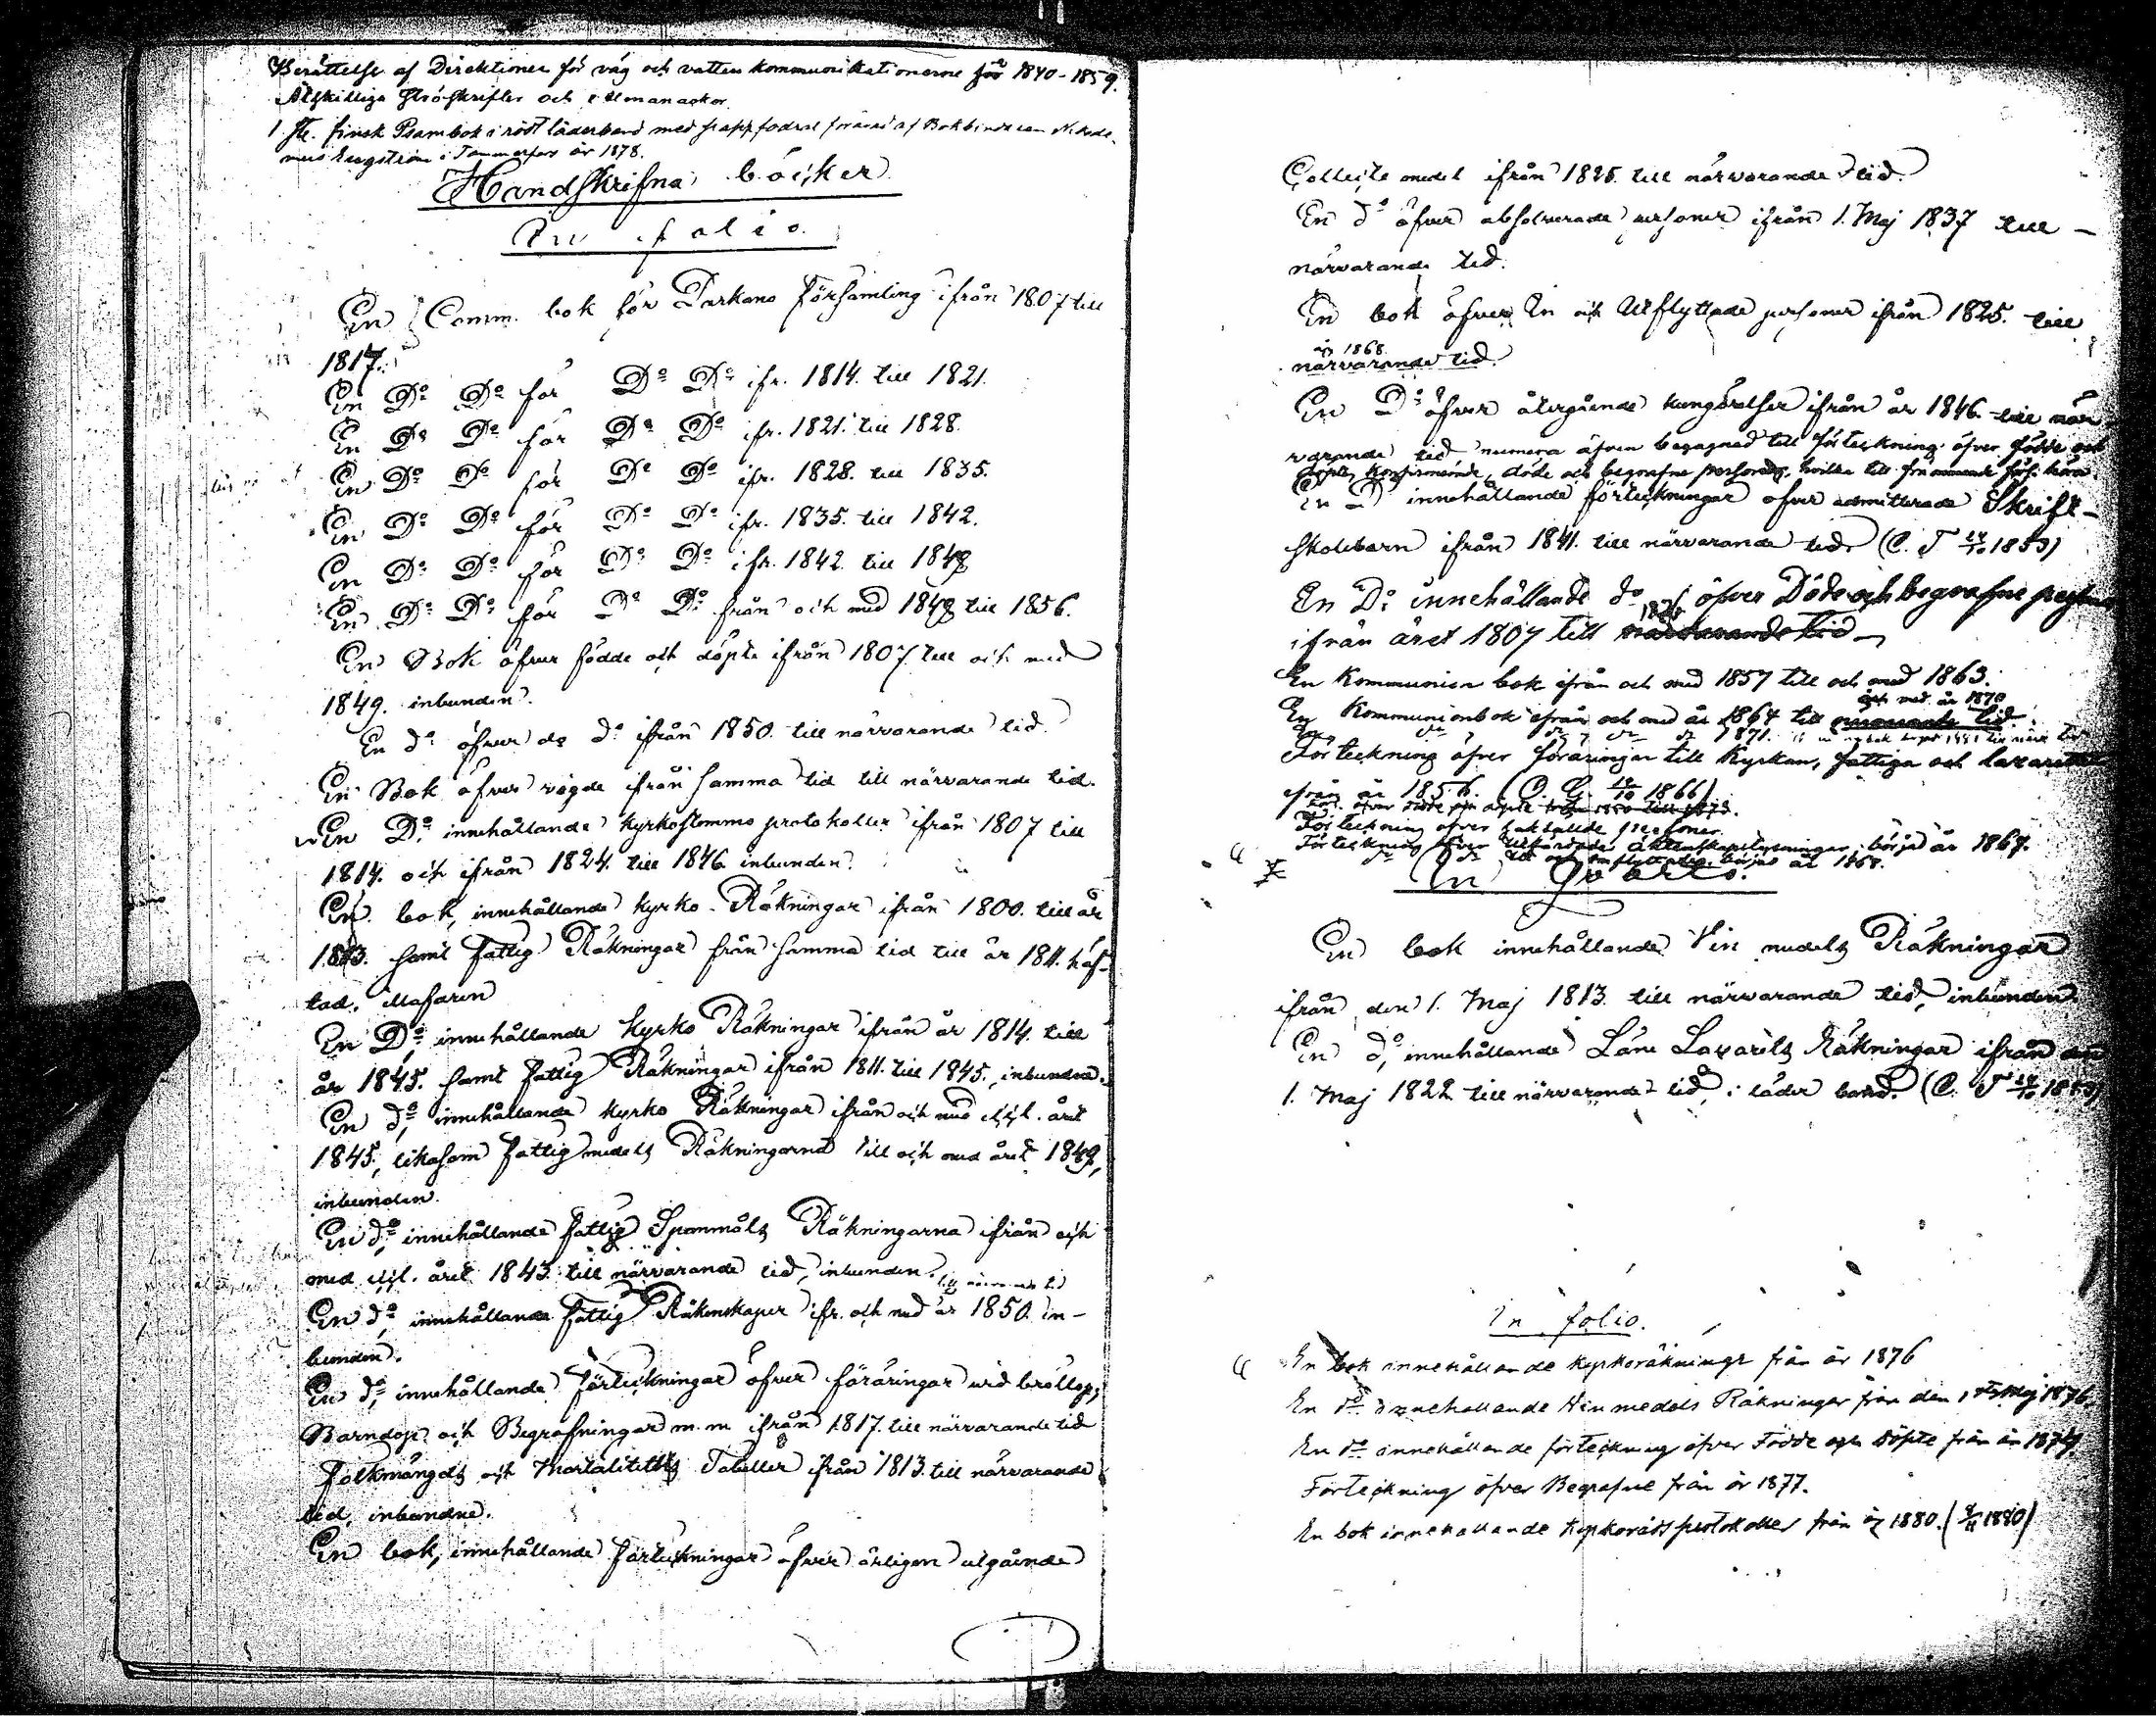 Berättelse af Direktionen för väg och vatten kommunikationerne för 1840-1859.
Åtskilliga ströskrifter och almanackor.
1 st. finsk Psalmbok i rödt läderband med papp fodral förärad af Bokbindaren Nikode-
mus Engström i Tammerfors år 1878.
Handskrifna böcker
In folio.
En Comm. bok för Parkano Församling ifrån 1807 till
1817.
En Do Do för Do Do ifr. 1814. till 1821.
En Do Do för Do Do ifr. 1821. till 1828.
En Do Do för Do Do ifr. 1828. till 1835.
En Do Do för Do Do ifr. 1835. till 1842.
En Do Do för Do Do ifr. 1842. till 1849
En Do Do för Do Do från och med 1849 till 1856.
En Bok öfver födde och döpte ifrån 1807. till och med
1849. inbunden.
En do öfver do do ifrån 1850. till närvarande tid.
En Bok öfver vigde ifrån samma tid till närvarande tid.
En Do innehållande kyrkostämmo protokoller ifrån 1807 till
1814. och ifrån 1824. till 1846. inbunden.
En bok, innehållande kyrko-Räkningar ifrån 1800. till år
1813. samt Fattig Räkningar från samma tid till år 1811. häf-
tad, illa faren
En Do, innehållande kyrko Räkningar ifrån år 1814. till
år 1845. samt fattig Räkningar ifrån 1811. till 1845., inbundna.
En do, innehållande kyrko Räkningar ifrån och med året
1845, likasom fattigmedels Räkningarna till och med året 1849,
inbunden.
En do, innehållande fattig Spanmåls Räkningarna ifrån och
med året 1843. till närvarande tid, inbunden.
till närvarande tid
En do, innehållande fattig Räkenskaper ifr. och med år 1850. in-
bunden.
En do, innehållande förteckningar öfver föräringar wid bröllop,
Barndop och Begrafningar m.m ifrån 1817. till närvarande tid
Folkmängds och Mortalitets Tabeller ifrån 1813. till närvarande
tid, inbundne.
En bok, innehållande förteckningar öfver årligen utgående
Collecte medel ifrån 1825. till närvarande tid.
En do öfver absolverade personer ifrån 1. Maj 1837 till
närvarande tid.
En bok öfver In och Utflyttade personer ifrån 1825. till
år 1868.
närvarande tid.
En Do öfver återgående kungörelser ifrån år 1846. till när
varande tid numera äfven begagnad till förteckning öfver födde och
döpte, Konfirmerade, döde och begrafne personer, hvilka till
En Do innehållande förteckningar öfver admitterade Skrift-
skolebarn ifrån 1841. till närvarande tid. (C. T 1853)
En Do innehållande do öfver Döde och begrafne
ifrån året 1807 till närvarande tid
En Kommunion bok ifrån och med 1857 till och med 1863.
och med år 1870
En Kommunionbok ifrån och med år 1864 till närvarande tid.
1871.
Förteckning öfver föräringar till Kyrkan, fattiga och Lazarettet
ifrån år 1856. (O. G. 1866)
Förteckning öfver personer
Förteckning öfver utfärdade äktenskapslysningar, börjad år 1867.
do do in och utflyttade, börjad år 1868.
In Qvarto.
En bok innehållande Vin medels Räkningar
ifrån den 1. Maj 1813. till närvarande tid, inbunden.
En do, innehållande Läne Lazaretts Räkningar ifrån den
1. Maj 1822 till närvarande tid, i läder band. (C. T 1853)
In folio.
En bok innehållande kyrkoräkningr från år 1876
En do innehållande Vin medels Räkningar från den 1 Maj 1876.
En do innehållande förteckning öfver Födde och döpte från år 1874
Förteckning öfver Begrafne från år 1877.
En bok innehållande kyrkoråds protokoller från år 1880. (1880)